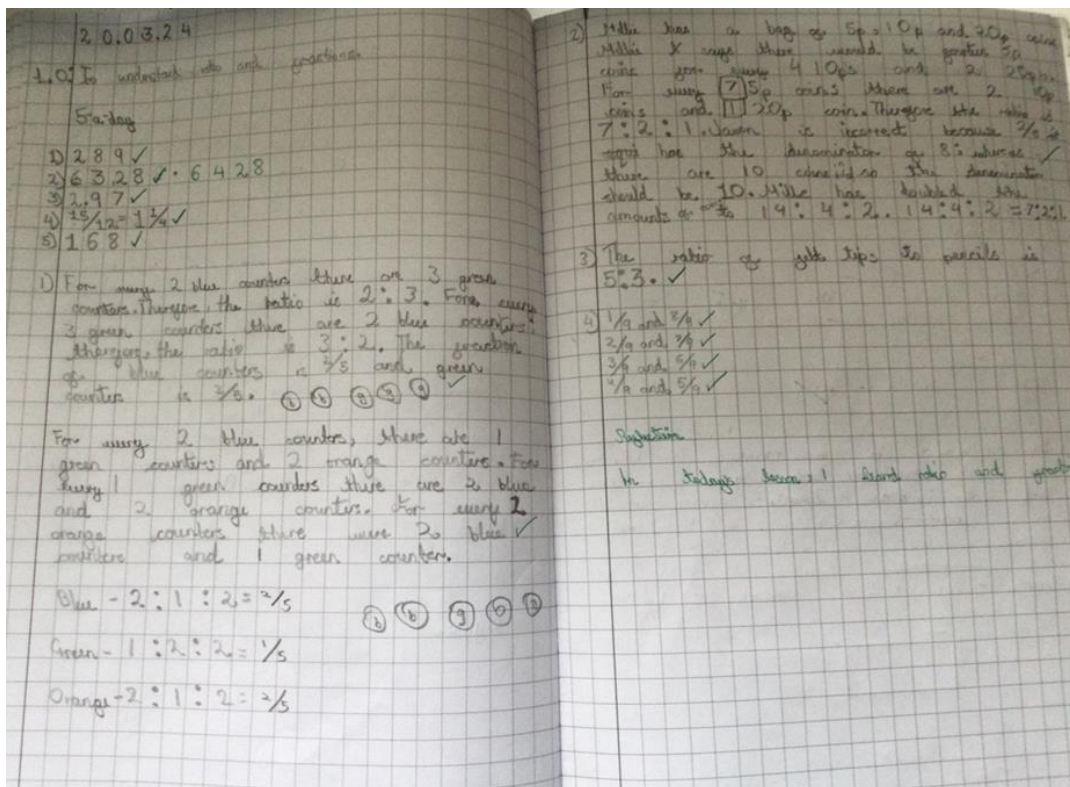 20.03.24
L.O: To understand ratio and fractions.
5-a-day
1) 289 ✓
2) 6328 ✓ · 6428
3) 2.97 ✓
4) 15/12 = 1 1/4 ✓
5) 168 ✓
1) For every 2 blue counters there are 3 green
counters. Therefore, the ratio is 2:3. For every
3 green counters there are 2 blue counters.
therefore, the ratio is 3:2. The fraction
of blue counters is 2/5 and green
counters is 3/5. b b g g g ✓
For every 2 blue counters, there are 1
green counters and 2 orange counters. For
every 1 green counters there are 2 blue
and 2 orange counters. For every 2
orange counters there were 2 blue ✓
counters and 1 green counter.
Blue - 2:1:2 = 2/5
b b g o o
Green - 1:2:2 = 1/5
Orange - 2:1:2 = 2/5
2) Millie has a bag of 5p, 10p and 20p coins
Millie says there would be 5p
coins for every 4 10ps and 2 20ps.
For every 7 5p coins there are 2 10p
coins and 1 20p coin. Therefore the ratio is
7:2:1. is incorrect because is
has the denominator of 8: whereas ✓
there are 10 so the denominator
should be 10. Millie has doubled the
amounts to 14:4:2. 14:4:2 = 7:2:1
3) The ratio of felt tips to pencils is
5:3. ✓
4) 1/9 and 8/9 ✓
2/9 and 7/9 ✓
3/9 and 6/9 ✓
4/9 and 5/9 ✓
Reflection
In today's lesson, I learnt ratio and